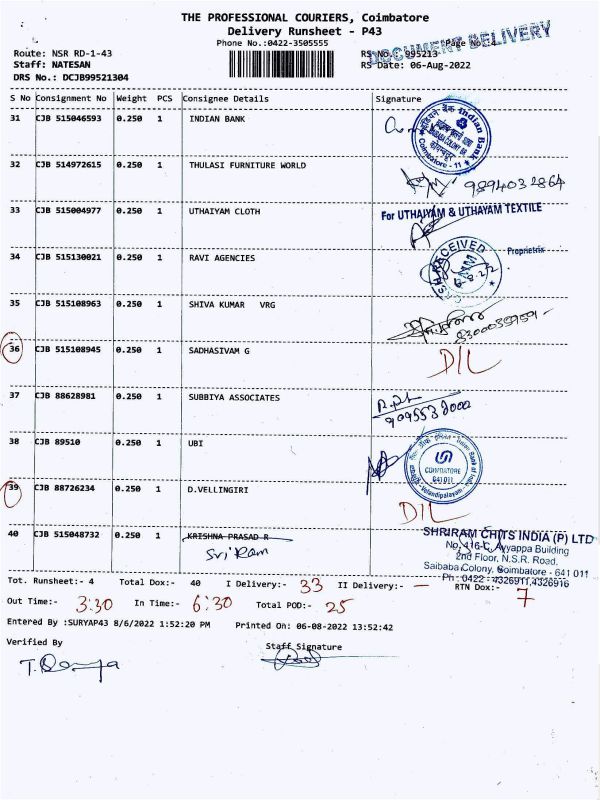 THE PROFESSIONAL COURIERS, Coimbatore
Delivery Runsheet - P43
Phone No.:0422-3505555
DOCUMENT DELIVERY
Page No:4
Route: NSR RD-1-43
RS No. 995213
Staff: NATESAN
RS Date: 06-Aug-2022
DRS No.: DCJB99521304
S No Consignment No Weight PCS Consignee Details Signature
31 CJB 515046593 0.250 1 INDIAN BANK
Indian Bank
Coimbatore - 11
32 CJB 514972615 0.250 1 THULASI FURNITURE WORLD
9894032864
33 CJB 515004977 0.250 1 UTHAIYAM CLOTH
For UTHAIYAM & UTHAYAM TEXTILE
Proprietrix
34 CJB 515130021 0.250 1 RAVI AGENCIES
RECEIVED
35 CJB 515108963 0.250 1 SHIVA KUMAR VRG
36 CJB 515108945 0.250 1 SADHASIVAM G
D/L
37 CJB 88628981 0.250 1 SUBBIYA ASSOCIATES
38 CJB 89510 0.250 1 UBI
COIMBATORE
641 011
39 CJB 88726234 0.250 1 D.VELLINGIRI
D/L
40 CJB 515048732 0.250 1 KRISHNA PRASAD R
Sri Ram
SHRIRAM CHITS INDIA (P) LTD
No. 416-C, Ayyappa Building
2nd Floor, N.S.R. Road.
Saibaba Colony, Coimbatore - 641 011
Ph : 0422 - 4326911,4326916
Tot. Runsheet:- 4 Total Dox:- 40 I Delivery:- 33 II Delivery:- — RTN Dox:- 7
Out Time:- 3:30 In Time:- 6:30 Total POD:- 25
Entered By :SURYAP43 8/6/2022 1:52:20 PM Printed On: 06-08-2022 13:52:42
Verified By
Staff Signature